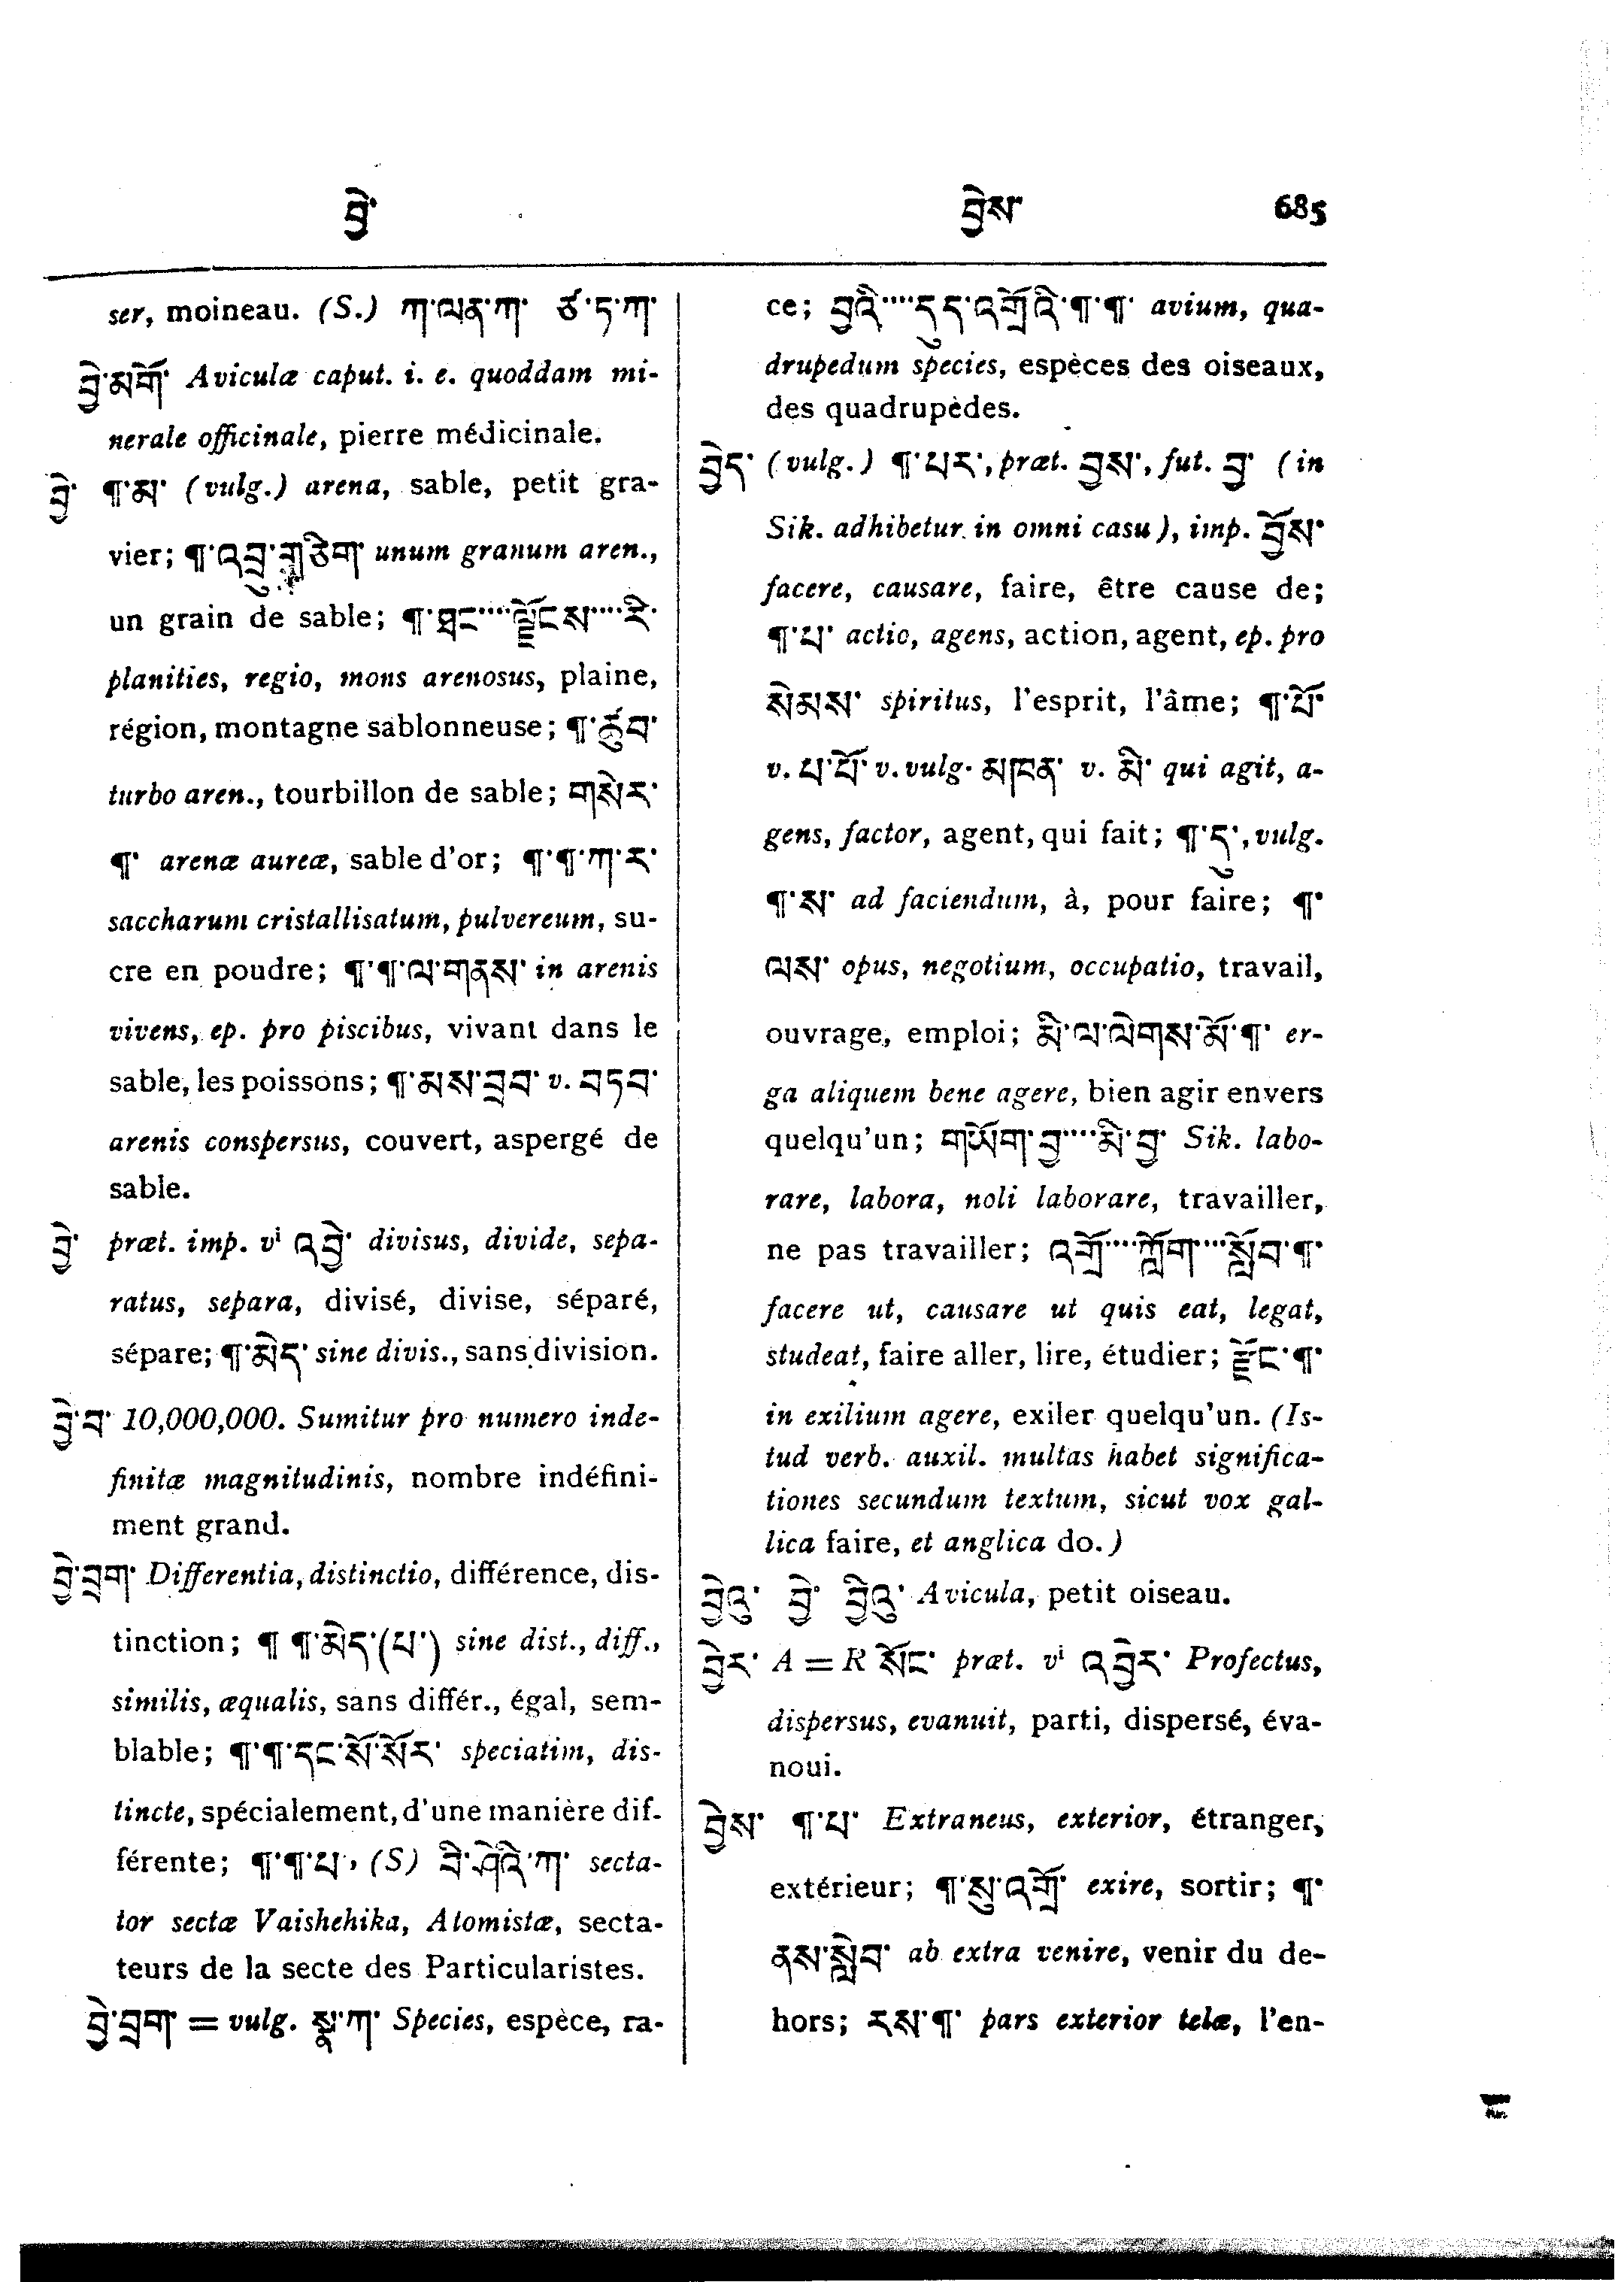 བྱེ་
བྱེས་ 685
ser, moineau. (S.) ཀ་ལན་ཀ་ ཙ་ཏ་ཀ་
བྱེ་མགོ་ Aviculæ caput. i. e. quoddam mi-
nerale officinale, pierre médicinale.
བྱེ་ ¶་མ་ (vulg.) arena, sable, petit gra-
vier; ¶་འབྲུ་གཅིག་ unum granum aren.,
un grain de sable; ¶་ཐང་····ལྗོངས་····རི་
planities, regio, mons arenosus, plaine,
région, montagne sablonneuse; ¶་རྩུབ་
turbo aren., tourbillon de sable; གསེར་
¶་ arenæ aureæ, sable d'or; ¶་¶་ཀ་ར་
saccharum cristallisatum, pulvereum, su-
cre en poudre; ¶་¶་ལ་གནས་ in arenis
vivens, ep. pro piscibus, vivant dans le
sable, les poissons; ¶་མས་བྲབ་ v. བཏབ་
arenis conspersus, couvert, aspergé de
sable.
བྱེ་ præt. imp. vi འབྱེ་ divisus, divide, sepa-
ratus, separa, divisé, divise, séparé,
sépare; ¶་མེད་ sine divis., sans division.
བྱེ་བ་ 10,000,000. Sumitur pro numero inde-
finitæ magnitudinis, nombre indéfini-
ment grand.
བྱེ་བྲག་ Differentia, distinctio, différence, dis-
tinction; ¶ ¶་མེད་(པ་) sine dist., diff.,
similis, æqualis, sans différ., égal, sem-
blable; ¶་¶་དང་སོ་སོར་ speciatim, dis-
tincte, spécialement, d'une manière dif-
férente; ¶་¶་པ་, (S) བི་ཤེའི་ཀ་ secta-
tor sectæ Vaishehika, Atomistæ, secta-
teurs de la secte des Particularistes.
བྱེ་བྲག་ = vulg. སྣ་ཀ་ Species, espèce, ra-
ce; བྱའི་····དུད་འགྲོའི་¶་¶་ avium, qua-
drupedum species, espèces des oiseaux,
des quadrupèdes.
བྱེད་ (vulg.) ¶་པར་, præt. བྱས་, fut. བྱ་ (in
Sik. adhibetur in omni casu), imp. བྱོས་
facere, causare, faire, être cause de;
¶་པ་ actio, agens, action, agent, ep. pro
སེམས་ spiritus, l'esprit, l'âme; ¶་པོ་
v. པ་པོ་ v. vulg. མཁན་ v. མི་ qui agit, a-
gens, factor, agent, qui fait; ¶་དུ་, vulg.
¶་ས་ ad faciendum, à, pour faire; ¶་
ལས་ opus, negotium, occupatio, travail,
ouvrage, emploi; མི་ལ་ལེགས་མོ་¶་ er-
ga aliquem bene agere, bien agir envers
quelqu'un; གཡོག་བྱ་····མི་བྱ་ Sik. labo-
rare, labora, noli laborare, travailler,
ne pas travailler; འགྲོ་····ཀློག་····སློབ་¶་
facere ut, causare ut quis eat, legat,
studeat, faire aller, lire, étudier; རྫོང་¶་
in exilium agere, exiler quelqu'un. (Is-
tud verb. auxil. multas habet significa-
tiones secundum textum, sicut vox gal-
lica faire, et anglica do.)
བྱེའུ་ བྱེ་ བྱིའུ་ Avicula, petit oiseau.
བྱེར་ A = R སོང་ præt. vi འབྱེར་ Profectus,
dispersus, evanuit, parti, dispersé, éva-
noui.
བྱེས་ ¶་པ་ Extraneus, exterior, étranger,
extérieur; ¶་སུ་འགྲོ་ exire, sortir; ¶་
ནས་སླེབ་ ab extra venire, venir du de-
hors; རས་¶་ pars exterior telæ, l'en-